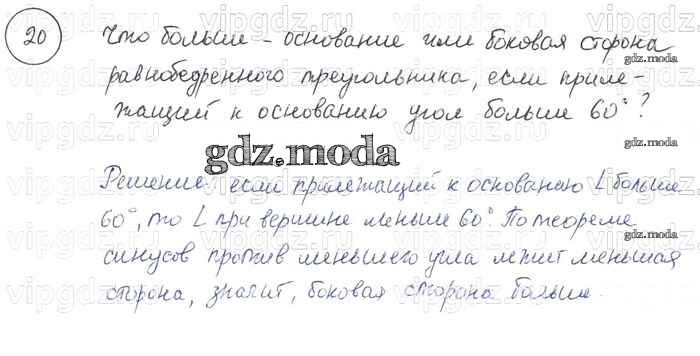 20 Что больше - основание или боковая сторона
равнобедренного треугольника, если приле-
жащий к основанию угол больше 60°?
gdz.moda
Решение: если прилежащий к основанию ∠ больше
60°, то ∠ при вершине меньше 60°. По теореме
синусов против меньшего угла лежит меньшая
сторона, значит, боковая сторона больше.